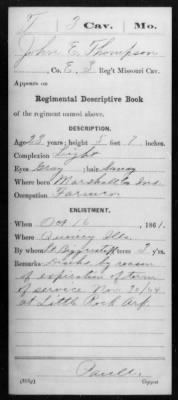 T | 3 Cav. | Mo.
John E. Thompson
, Co. E, 3 Reg't Missouri Cav.
Appears on
Regimental Descriptive Book
of the regiment named above.
DESCRIPTION.
Age 23 years; height 5 feet 7 inches.
Complexion Light
Eyes Gray ; hair Sandy
Where born Marshall Co Ind.
Occupation Farmer
ENLISTMENT.
When Oct 16, 1861.
Where Quincy Ills.
By whom term 3 y'rs.
Remarks by reason
of expiration of term
of service Nov 20/64
at Little Rock Ark.
Copyist.